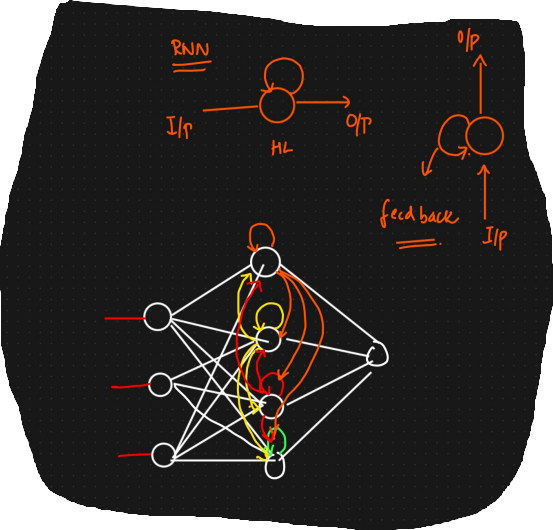 RNN
I/P
O/P
HL
O/P
feedback
I/P